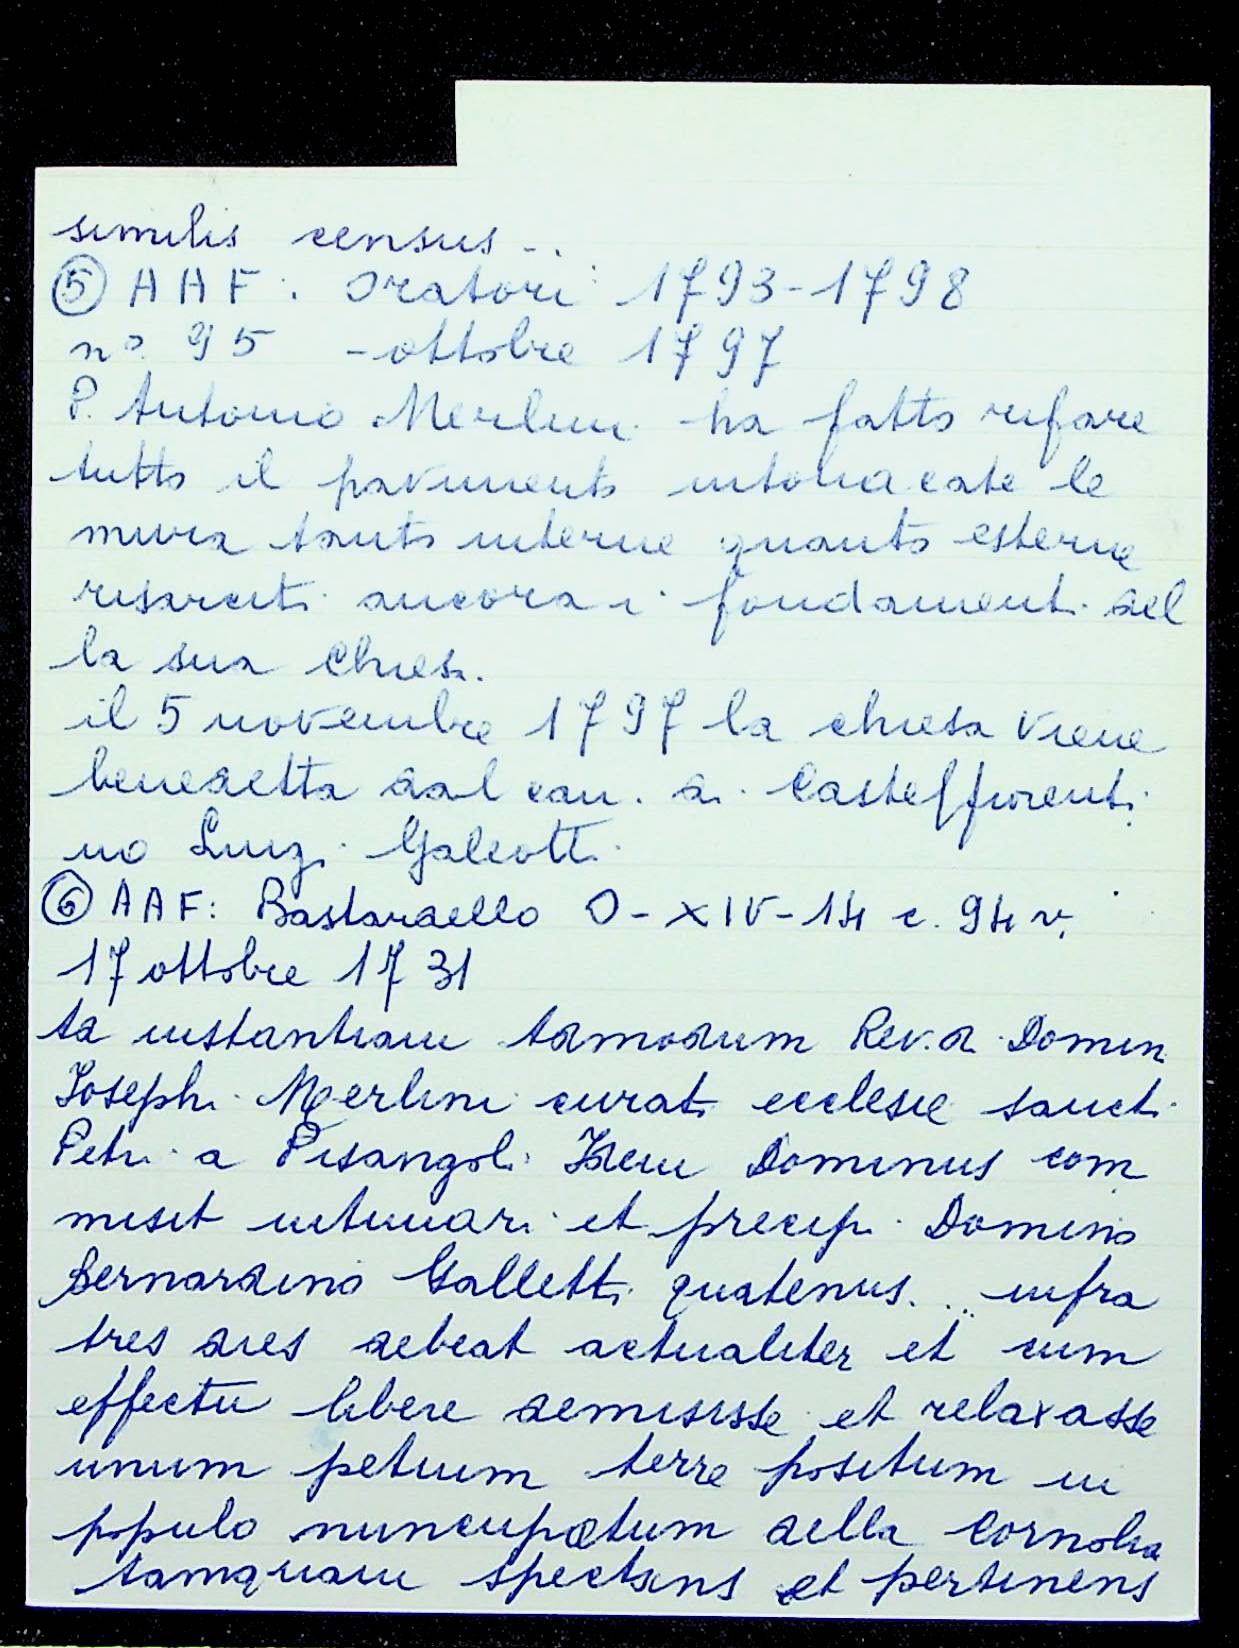 similis census...
⑤ AAF: Oratori 1793-1798
n°. 95 - ottobre 1797
P. Antonio Merlini ha fatto rifare
tutto il pavimento intonacate le
mura tanto interne quanto esterne
risarciti ancora i fondamenti del
la sua chiesa.
il 5 novembre 1797 la chiesa viene
benedetta dal can. di Castelfiorenti
no Luigi Galeotti.
⑥ AAF: Bastardello O-XIV-14 c. 94 v.
17 ottobre 1731
instantiam admodum Rev.di Domin
Joseph Merlini curati ecclesie sancti
Petri a Pisangoli Idem Dominus com
misit intimari et precipi Domino
Bernardino Galletti quatenus... infra
tres dies debeat actualiter et cum
effectu libere demisisse et relaxasse
unum petium terre positum in
populo nuncupatum della Cornola
tamquam spectans et pertinens